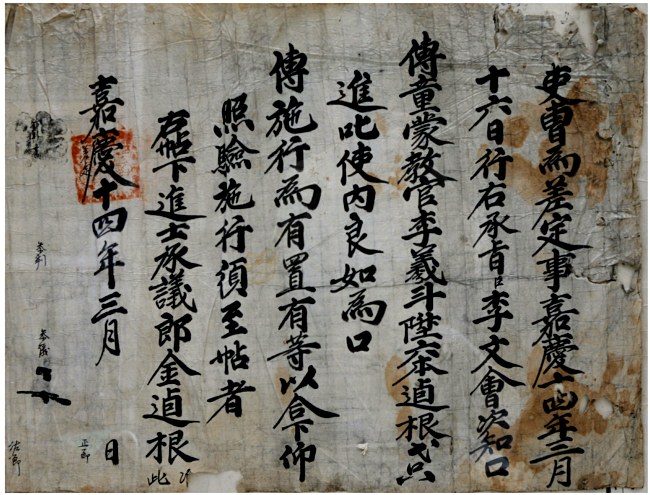 吏曹為差定事嘉慶十四年三月
十六日行右承旨臣李文會次知口
傳童蒙教官李羲斗陞六逌根
進叱使內良如為口
傳施行為有置有等以合下仰
照驗施行須至帖者
右帖下進士承議郎金逌根
嘉慶十四年三月 日
參判
參議
正郎
佐郎